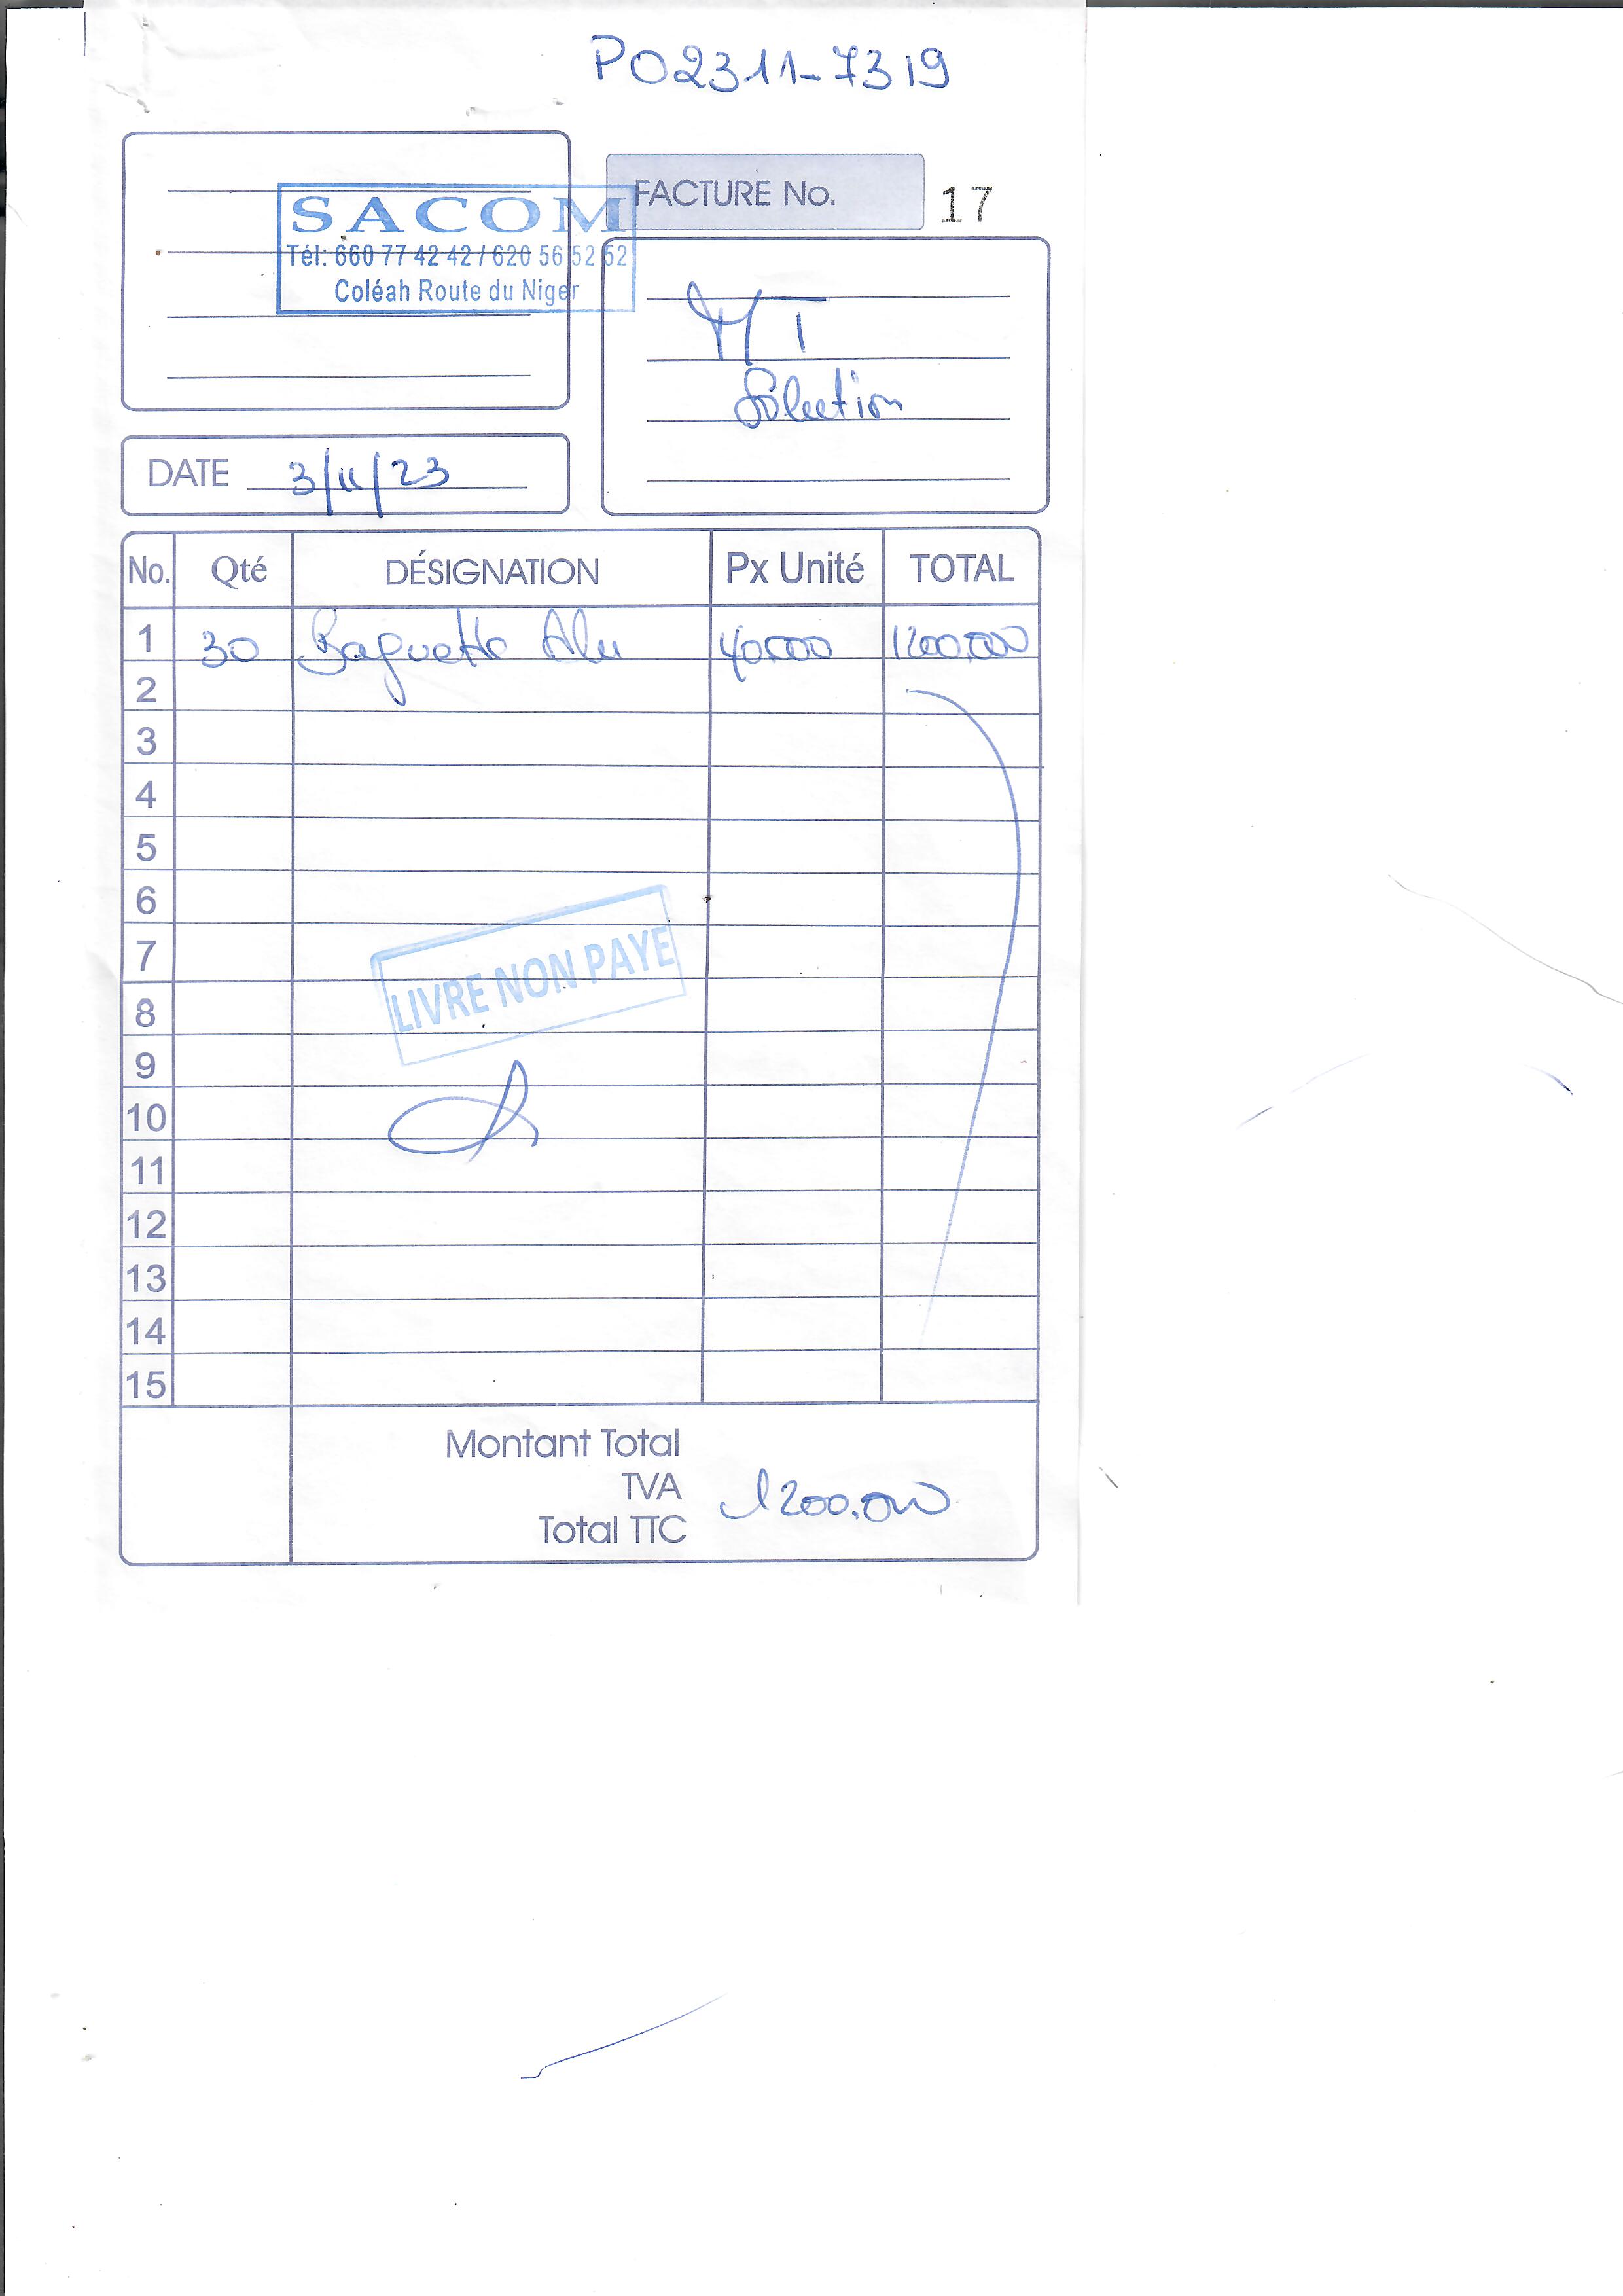 PO2311-7319
SACOM
Tél: 660 77 42 42 / 620 56 52 52
Coléah Route du Niger
FACTURE No. 17
MT
Sélection
DATE 3/11/23
No. Qté DÉSIGNATION Px Unité TOTAL
1 30 Baguette Alu 40.000 1200.000
2
3
4
5
6
7
LIVRE NON PAYE
8
9
10
11
12
13
14
15
Montant Total
TVA 1200.000
Total TTC